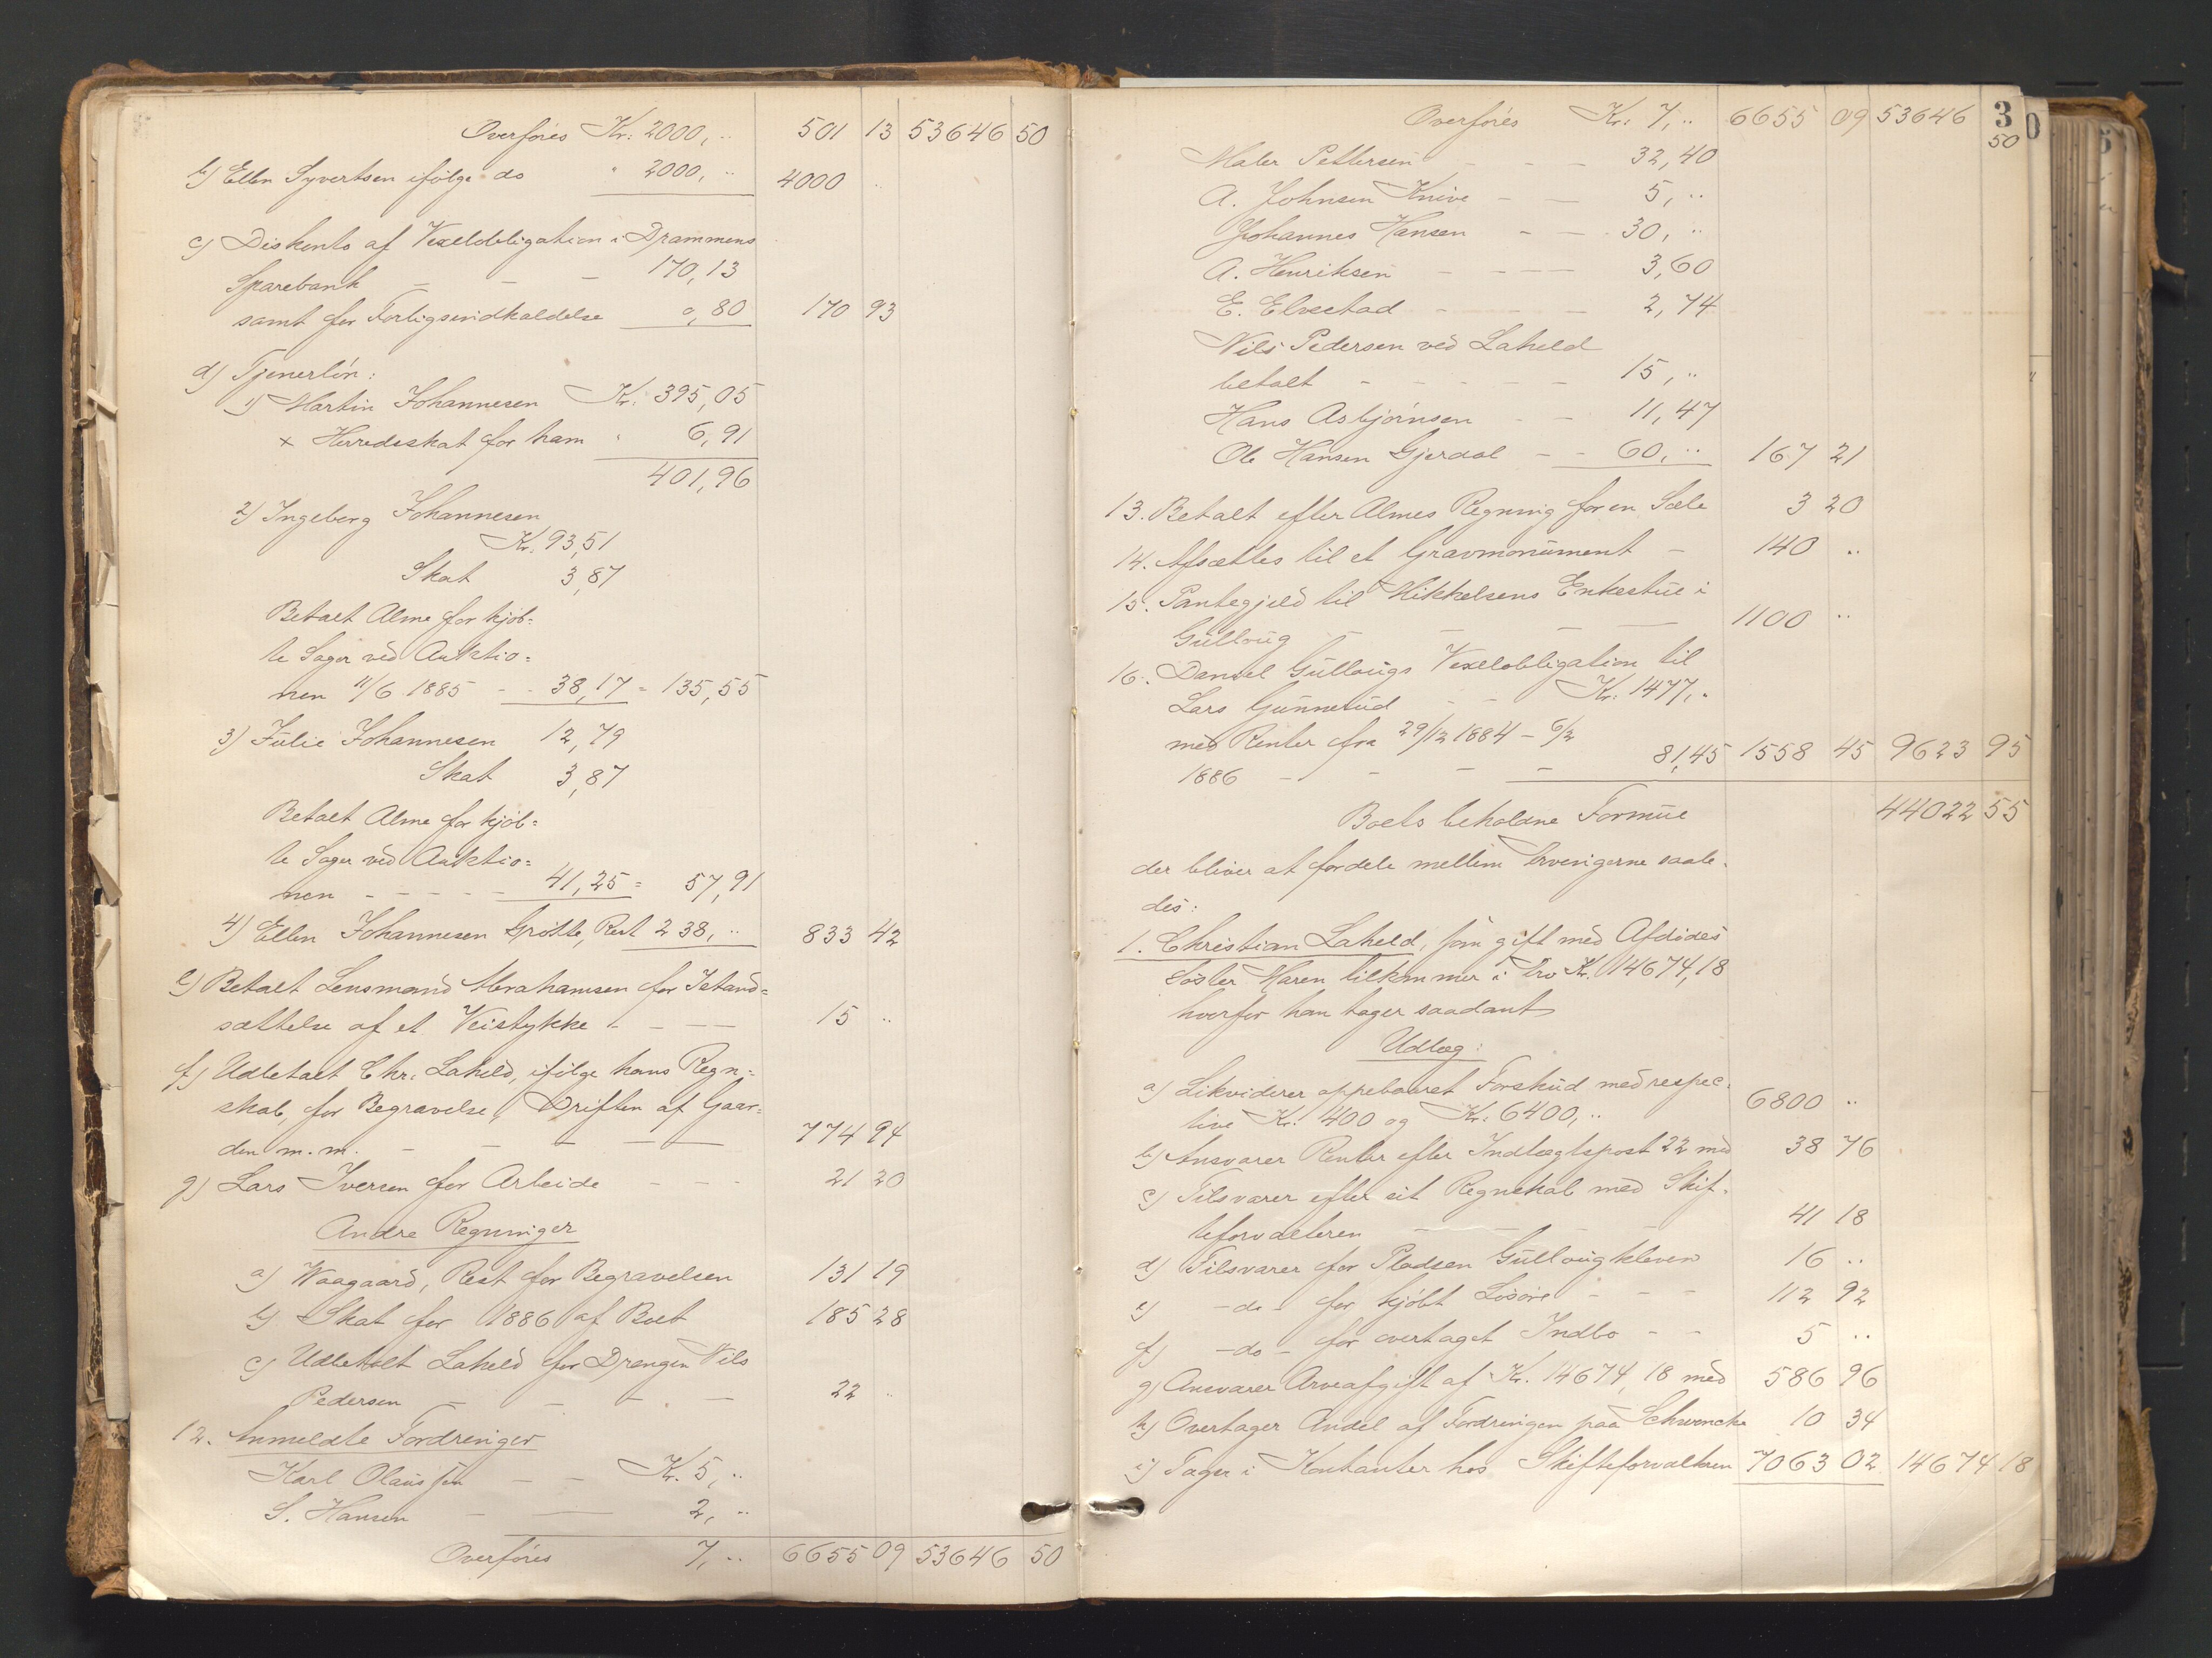 Overføres Kr. 2000, .. 501 13 53646 50
b) Ellen Syvertsen ifølge do " 2000, .. 4000 ..
c) Diskonto af Vexelobligation i Drammens
Sparebank - - - 170,13
samt for Forligsindkaldelse 0,80 170 93
d) Tjenerløn:
1) Martin Johannesen Kr. 395,05
x Herredsskat for ham " 6,91
401,96
2) Ingeborg Johannesen
Kr. 93,51
Skat 3,87
Betalt Alme for kjøb=
te Sager ved Auktio=
nen 11/6 1885 - - 38,17 = 135,55
3) Julie Johannesen 12,79
Skat 3,87
Betalt Alme for kjøb=
te Sager ved Auktio=
nen - - - - - 41,25 = 57,91
4) Ellen Johannesen Grøtte, Rest 238, .. 833 42
e) Betalt Lensmand Abrahamsen for Istand=
sættelse af et Veistykke - - - 15 ..
f) Udbetalt Chr. Laheld, ifølge hans Regn=
skab, for Begravelse, Driften af Gaar=
den m. m. - - - - 774 94
g) Lars Iversen for Arbeide - - - 21 20
Andre Regninger
a) Waagaard, Rest for Begravelsen 131 19
b) Skat for 1886 af Boet 185 28
c) Udbetalt Laheld for Drengen Nils
Pedersen - - - - 22 ..
12. Anmeldte Fordringer
Karl Olaussen - - Kr. 5, ..
S. Hansen - - 2, ..
Overføres 7, .. 6655 09 53646 50
3
Overføres Kr. 7, .. 6655 09 53646 50
Maler Pettersen - - - 32,40
A. Johnsen Knive - - 5, ..
Johannes Hansen - - 30, ..
A. Henriksen - - - 3,60
E. Elvestad - - - 2,74
Nils Pedersen ved Laheld
betalt - - - - - 15, ..
Hans Asbjørnsen - - 11,47
Ole Hansen Gjerdal - - 60, .. 167 21
13. Betalt efter Almes Regning for en Sæle 3 20
14. Afsættes til et Gravmonument - 140 ..
15. Pantegjeld til Mikkelsens Enkestue i
Gulloug - - - - 1100 ..
16. Daniel Gullougs Vexelobligation til
Lars Gunnerud - - Kr. 1477, ..
med Renter fra 29/12 1884 - 6/2
1886 - - - - 81,45 1558 45 9623 95
Boets beholdne Formue 44022 55
der bliver at fordele mellem Arvingerne saale-
des:
1. Christian Laheld, som gift med Afdødes
Søster Maren tilkommer i Arv Kr. 14674,18
hvorfor han tager saadant
Udlæg:
a) Likviderer oppebaaret Forskud med respec-
tive Kr. 400 og Kr. 6400, .. 6800 ..
b) Ansvarer Renter efter Indtægtspost 22 med 38 76
c) Tilsvarer efter sit Regnskab med Skif-
teforvalteren - - - - 41 18
d) Tilsvarer for Pladsen Gullougkleven 16 ..
e) - do - for kjøbt Løsøre - - - 112 92
f) - do - for overtaget Indbo - - 5 ..
g) Ansvarer Arveafgift af Kr. 14674,18 med 586 96
h) Overtager Andel af Fordringen paa Schwencke 10 34
i) Tager i Kontanter hos Skifteforvalteren 7063 02 14674 18